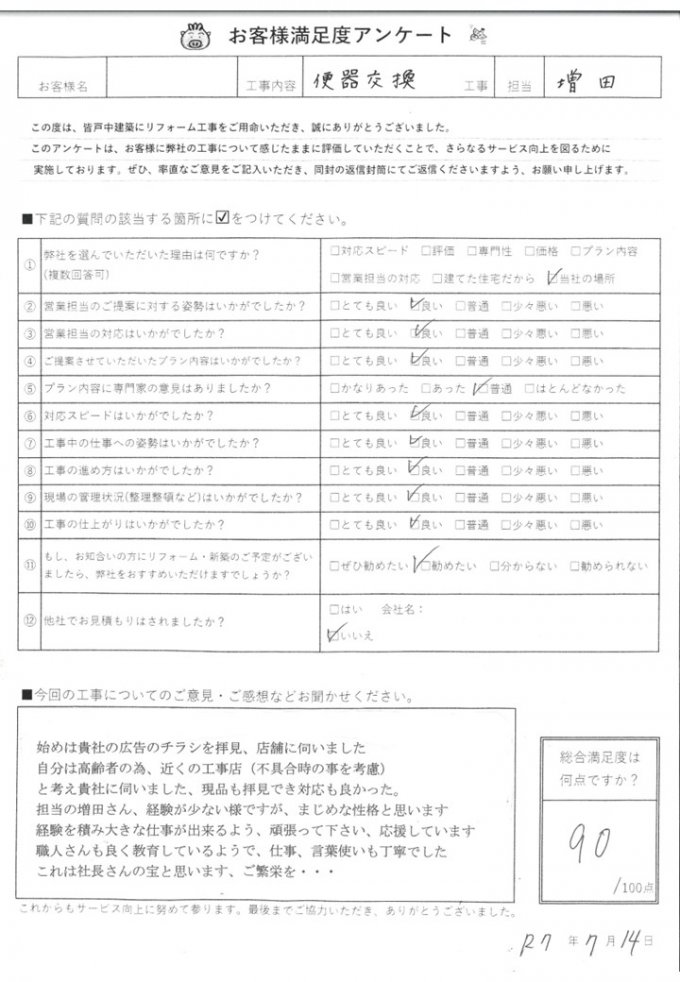 お客様満足度アンケート
お客様名 工事内容 便器交換 工事 担当 増田
この度は、皆戸中建築にリフォーム工事をご用命いただき、誠にありがとうございました。
このアンケートは、お客様に弊社の工事について感じたままに評価していただくことで、さらなるサービス向上を図るために
実施しております。ぜひ、率直なご意見をご記入いただき、同封の返信封筒にてご返信くださいますよう、お願い申し上げます。
■下記の質問の該当する箇所に☑をつけてください。
① 弊社を選んでいただいた理由は何ですか？
(複数回答可)
□対応スピード □評価 □専門性 □価格 □プラン内容
□営業担当の対応 □建てた住宅だから ☑当社の場所
② 営業担当のご提案に対する姿勢はいかがでしたか？ □とても良い ☑良い □普通 □少々悪い □悪い
③ 営業担当の対応はいかがでしたか？ □とても良い ☑良い □普通 □少々悪い □悪い
④ ご提案させていただいたプラン内容はいかがでしたか？ □とても良い ☑良い □普通 □少々悪い □悪い
⑤ プラン内容に専門家の意見はありましたか？ □かなりあった □あった ☑普通 □ほとんどなかった
⑥ 対応スピードはいかがでしたか？ □とても良い ☑良い □普通 □少々悪い □悪い
⑦ 工事中の仕事への姿勢はいかがでしたか？ □とても良い ☑良い □普通 □少々悪い □悪い
⑧ 工事の進め方はいかがでしたか？ □とても良い ☑良い □普通 □少々悪い □悪い
⑨ 現場の管理状況(整理整頓など)はいかがでしたか？ □とても良い ☑良い □普通 □少々悪い □悪い
⑩ 工事の仕上がりはいかがでしたか？ □とても良い ☑良い □普通 □少々悪い □悪い
⑪ もし、お知合いの方にリフォーム・新築のご予定がござい
ましたら、弊社をおすすめいただけますでしょうか？
□ぜひ勧めたい ☑勧めたい □分からない □勧められない
⑫ 他社でお見積もりはされましたか？
□はい 会社名：
☑いいえ
■今回の工事についてのご意見・ご感想などお聞かせください。
始めは貴社の広告のチラシを拝見、店舗に伺いました
自分は高齢者の為、近くの工事店（不具合時の事を考慮）
と考え貴社に伺いました、現品も拝見でき対応も良かった。
担当の増田さん、経験が少ない様ですが、まじめな性格と思います
経験を積み大きな仕事が出来るよう、頑張って下さい、応援しています
職人さんも良く教育しているようで、仕事、言葉使いも丁寧でした
これは社長さんの宝と思います、ご繁栄を・・・
総合満足度は
何点ですか？
90
/100点
これからもサービス向上に努めて参ります。最後までご協力いただき、ありがとうございました。
R7 年 7 月 14 日